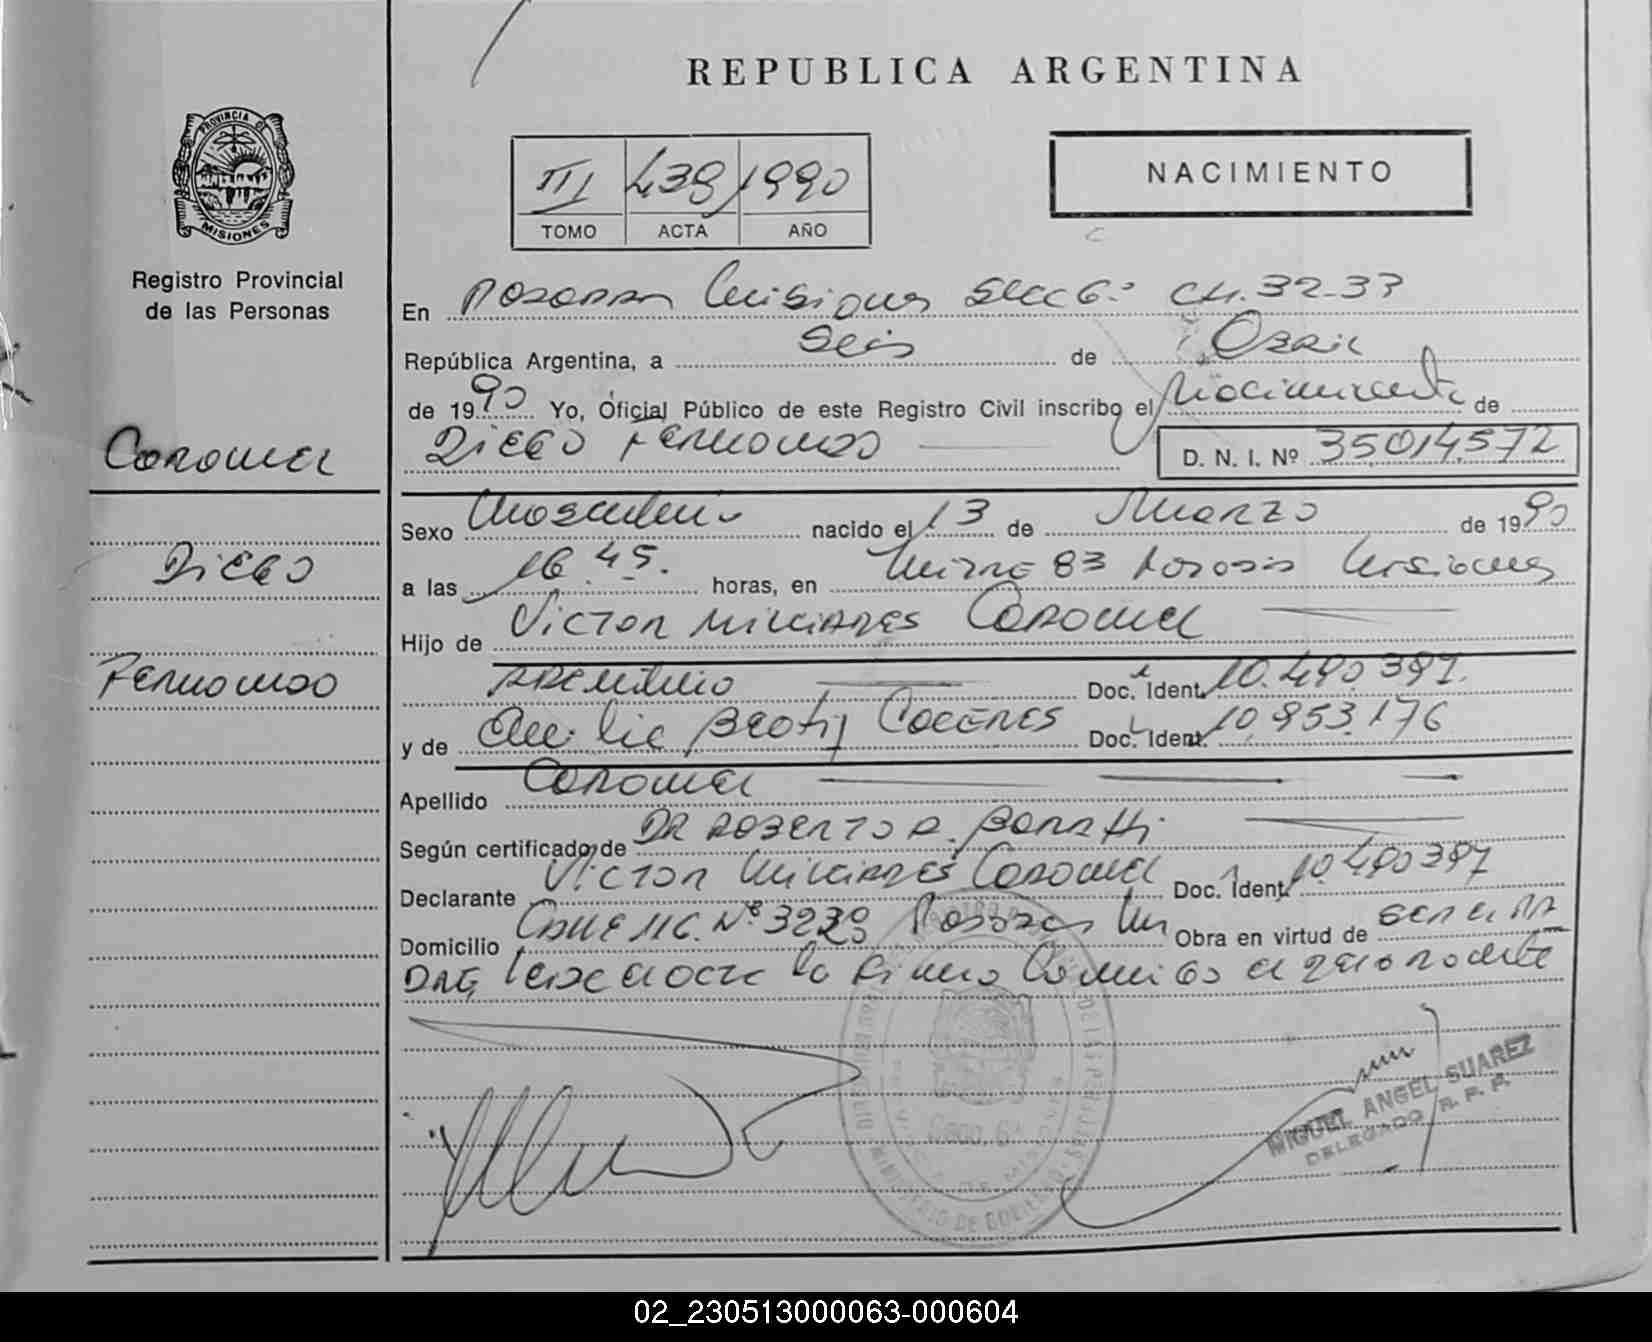 REPUBLICA ARGENTINA
PROVINCIA DE
MISIONES
Registro Provincial
de las Personas
III 439 1990
TOMO ACTA AÑO
NACIMIENTO
En Posadas Misiones Secc 6º CH. 32-33
República Argentina, a Seis de Abril
de 1990 Yo, Oficial Público de este Registro Civil inscribo el Nacimiento de
Coronel
Diego Fernando D. N. I. Nº 35.014.572
Sexo Masculino nacido el 13 de Marzo de 1990
Diego
a las 16.45. horas, en 83 Posadas Misiones
Hijo de Victor Milciades Coronel
Fernando
Argentino Doc. Ident. 10.490.397.
y de Beatriz Coceres Doc. Ident. 10.953.176
Apellido Coronel
Según certificado de DR ROBERTO A.
Declarante Victor Milciades Coronel Doc. Ident. 10.490.397
Domicilio Calle Nº Posadas Obra en virtud de
Leida el acta la firma conmigo el
MIGUEL ANGEL SUAREZ
DELEGADO R. P. P.
02_230513000063-000604